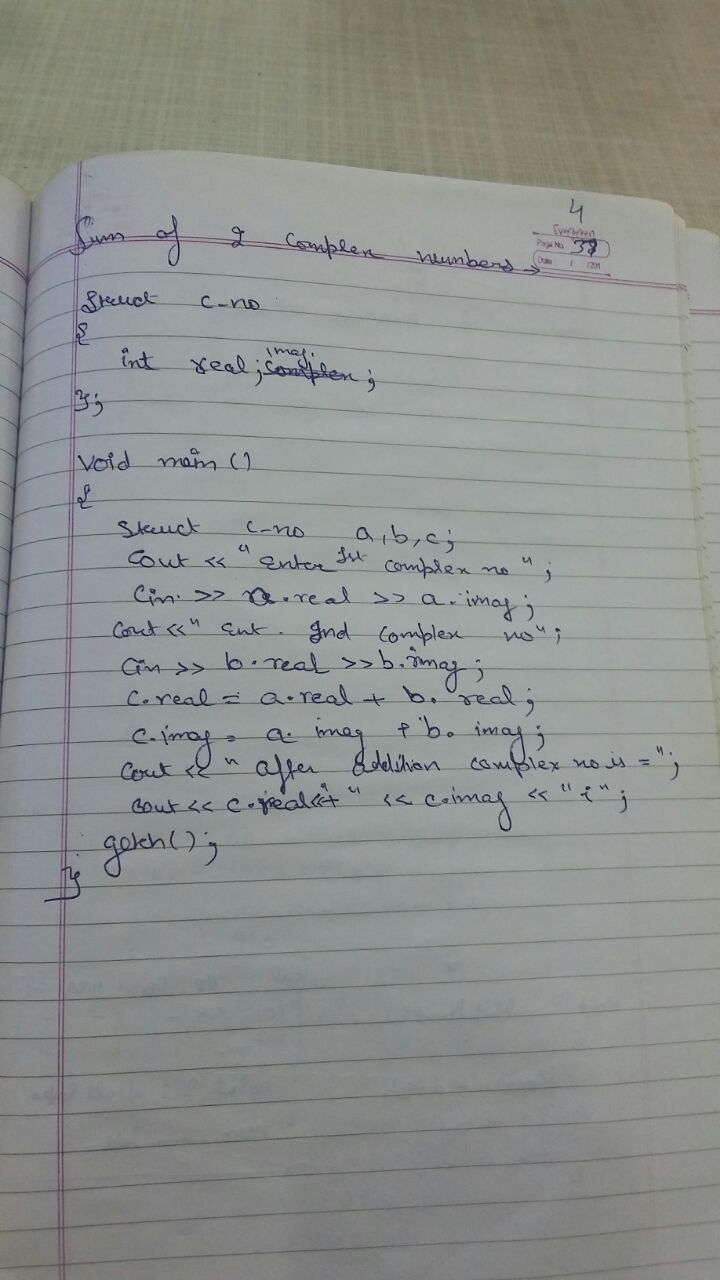 4
Evergreen
Page No. 38
Date / /201
Sum of 2 complex numbers →
Struct c-no
{
int real; imag. complex;
};
void main ()
{
Struct c-no a, b, c;
Cout << " enter Ist complex no ";
Cin. >> a.real >> a. imag;
Cout <<" Ent. IInd complex no";
Cin >> b.real >> b.imag;
C.real = a.real + b. real;
C.imag = a. imag + b. imag;
Cout << " after addition complex no is = ";
Cout << c.real<<"+" << c.imag << "i";
getch();
}